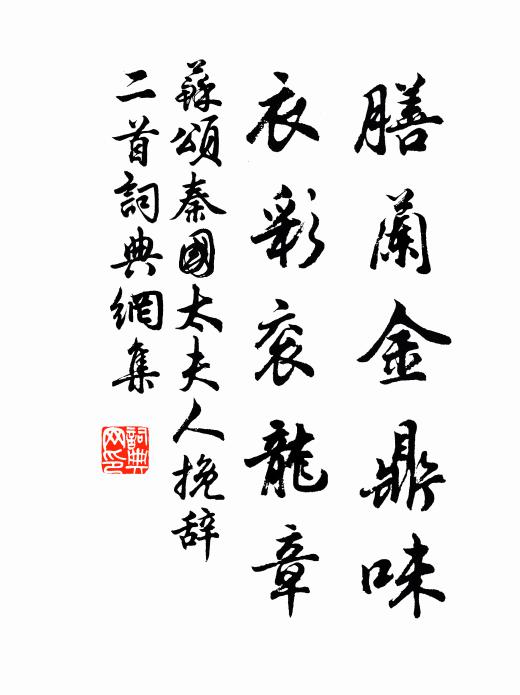 膳蘭金鼎味
衣彩衮龍章
蘇頌秦國太夫人挽辞
二首詞典網集
詞典网印